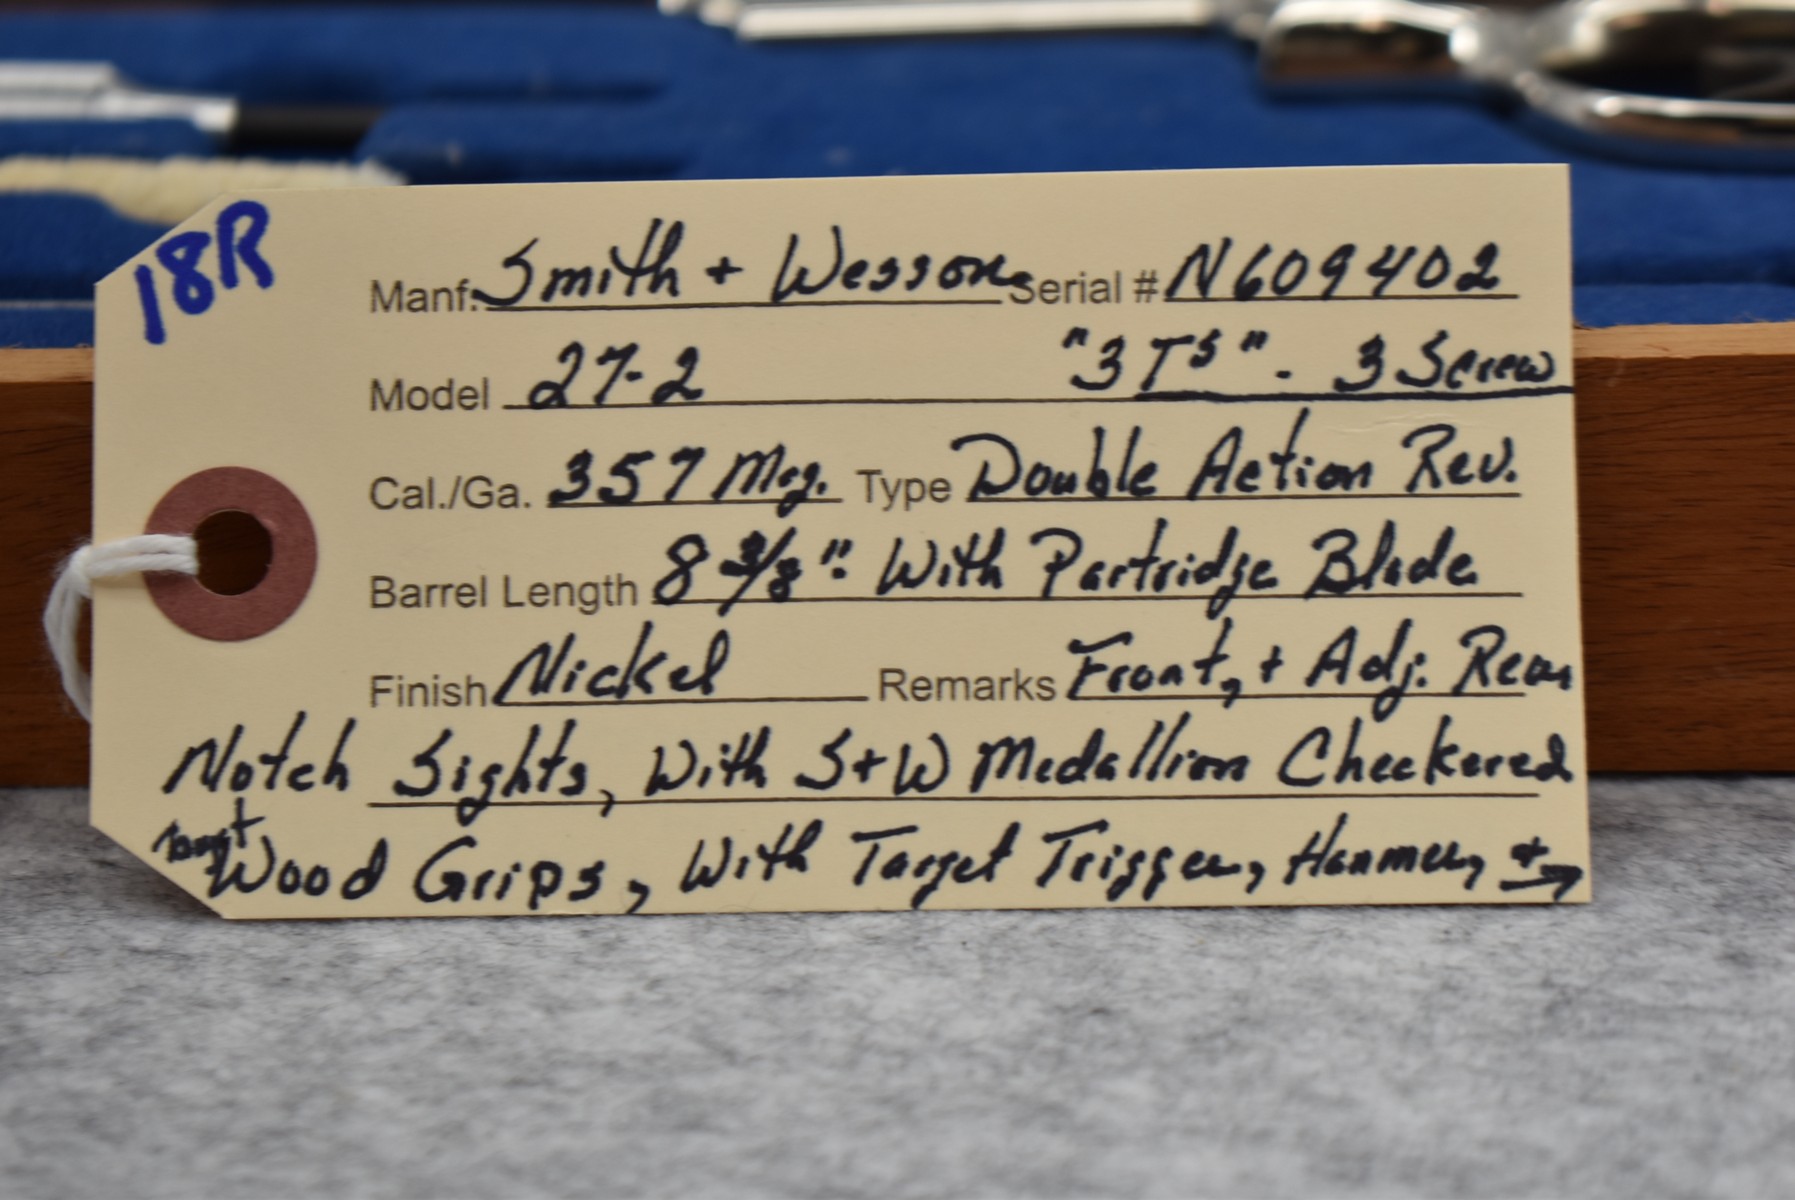 18R
Manf. Smith + Wesson Serial # N609402
Model 27-2 "3 TS" - 3 Screw
Cal./Ga. 357 Mag. Type Double Action Rev.
Barrel Length 8 3/8" With Partridge Blade
Finish Nickel Remarks Front, + Adj. Rear
Notch Sights, With S+W Medallion Checkered
Wood Grips, With Target Trigger, Hammer, + →